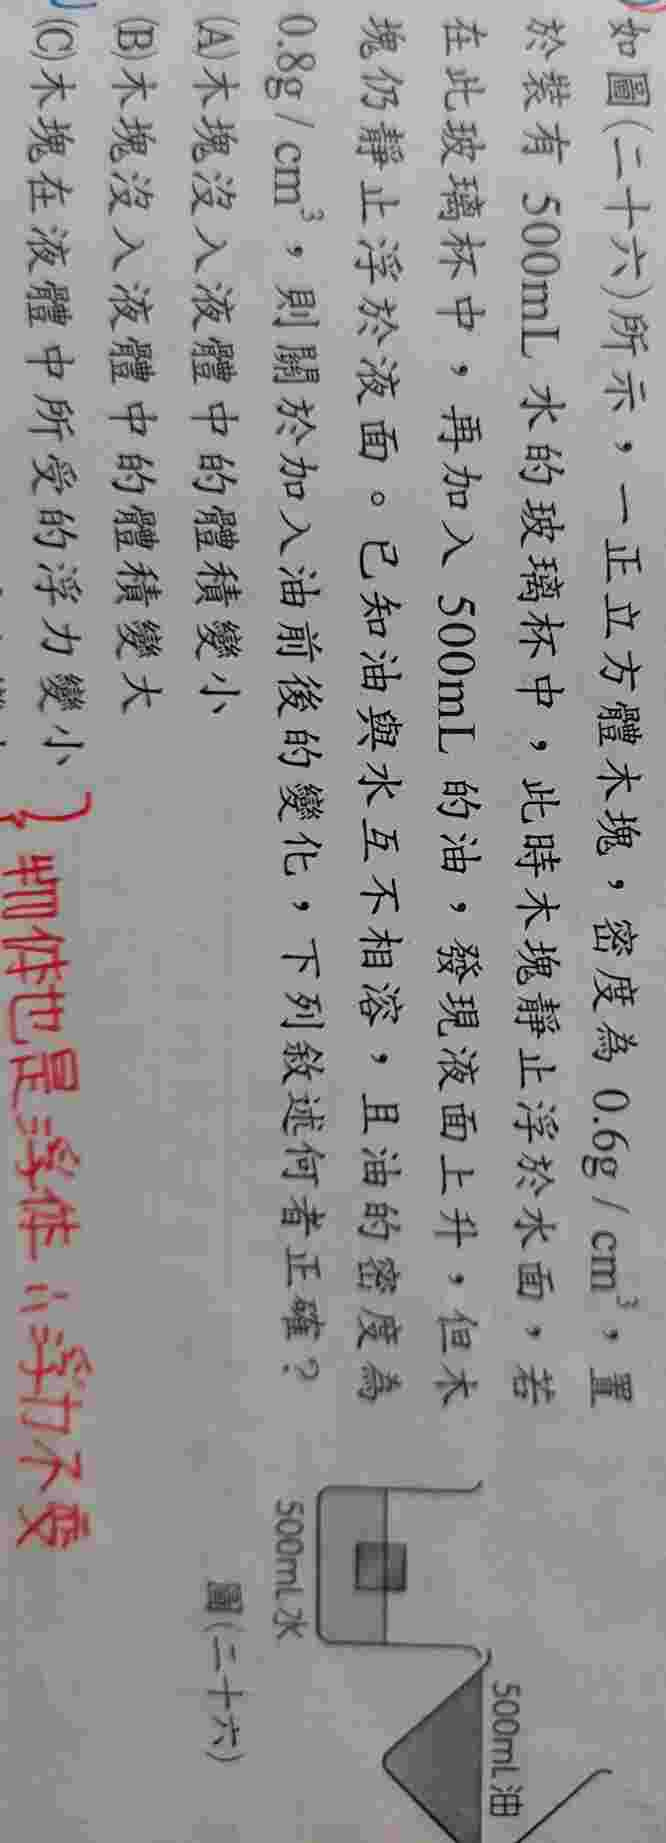 如圖(二十六)所示，一正立方體木塊，密度為 0.6g / cm³，置
於裝有 500mL 水的玻璃杯中，此時木塊靜止浮於水面，若
在此玻璃杯中，再加入 500mL 的油，發現液面上升，但木
塊仍靜止浮於液面。已知油與水互不相溶，且油的密度為
0.8g / cm³，則關於加入油前後的變化，下列敘述何者正確？
(A)木塊沒入液體中的體積變小
(B)木塊沒入液體中的體積變大
(C)木塊在液體中所受的浮力變小
物体也是浮体∴浮力不变
500mL油
500mL水
圖(二十六)